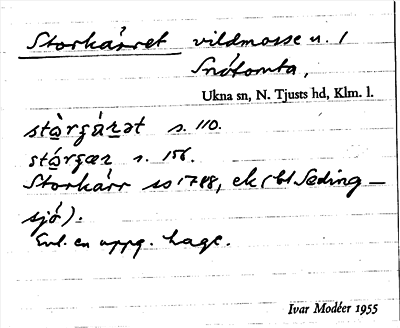 Storkärret vildmosse u. 1
Småtomta,
Ukna sn, N. Tjusts hd, Klm. l.
s. 110.
s. 156.
Storkärr so 1788, ek (bl Sæding-
sjö).
Enl. en uppg. hage.
Ivar Modéer 1955